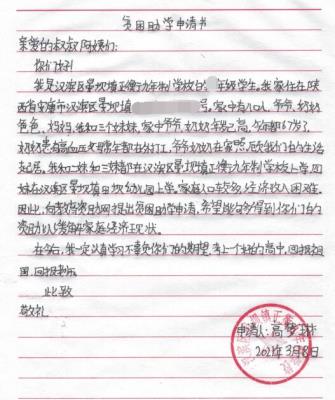 贫困助学申请书
亲爱的叔叔阿姨们:
你们好!
我是汉滨区景坝镇正衡九年制学校的 年级学生。我家住在陕
西省安康市汉滨区景坝镇 号,家中有10人,爷爷、奶奶
爸爸、妈妈、我和三个妹妹,家中爷爷、奶奶年纪已高,今年都67岁了,
奶奶患有高血压 都在外打工,爷爷奶奶在家照顾我们的生活
起居。我和二妹和三妹都在汉滨区景坝镇正衡九年制学校上学,四
妹在汉滨区景坝镇田坝幼儿园上学。家庭人口较多,经济收入困难。
因此,向 资助网提出贫困助学申请,希望能够得到你们的
资助以缓解家庭经济现状。
在今后,我一定认真学习不辜负你们的期望,考上个好的高中,回报祖
国,回报
此致
敬礼
申请人:高梦琳
2021年3月8日